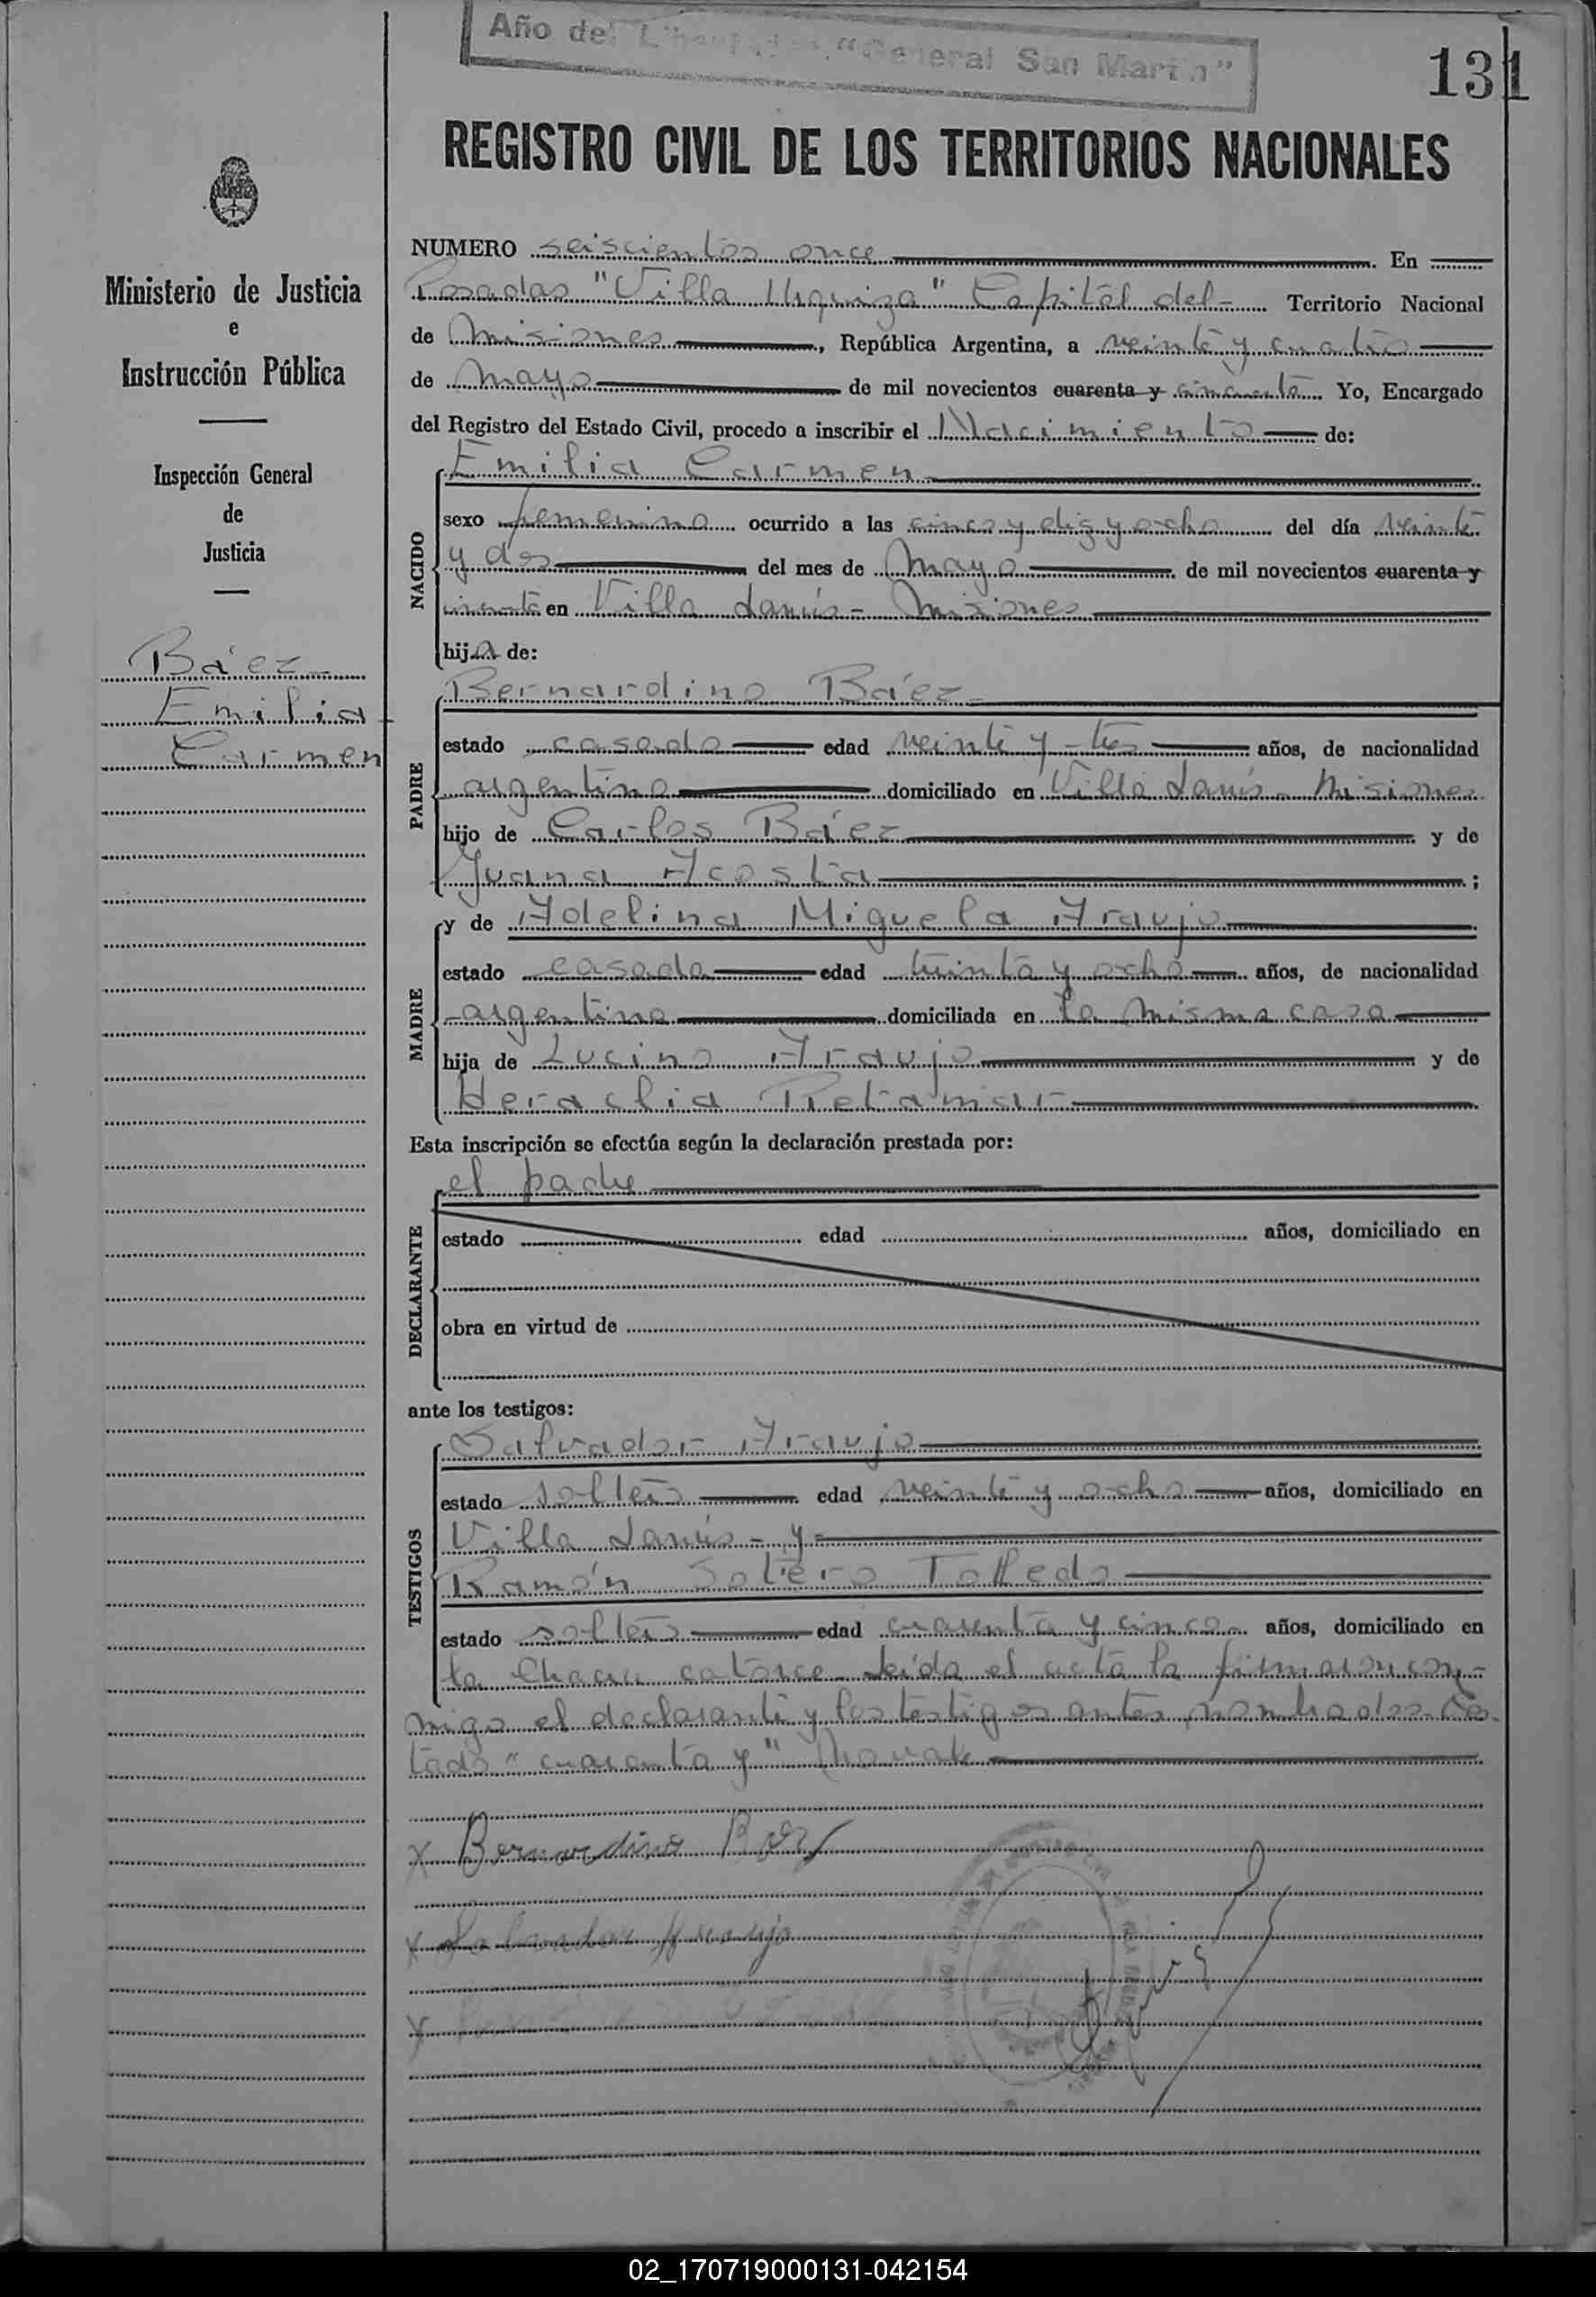 Año del Libertador "General San Martín"
131
REGISTRO CIVIL DE LOS TERRITORIOS NACIONALES
Ministerio de Justicia
e
Instrucción Pública
Inspección General
de
Justicia
Báez
Emilia
Carmen
NUMERO seiscientos once En
Posadas "Villa Urquiza" Capital del Territorio Nacional
de Misiones, República Argentina, a veinte y cuatro
de mayo de mil novecientos cuarenta y cincuenta Yo, Encargado
del Registro del Estado Civil, procedo a inscribir el Nacimiento de:
NACIDO
Emilia Carmen
sexo femenino ocurrido a las cinco y diez y ocho del día veinte
y dos del mes de mayo de mil novecientos cuarenta y
cincuenta en Villa Lanús - Misiones
hija de:
PADRE
Bernardino Báez
estado casado edad veinte y tres años, de nacionalidad
argentina domiciliado en Villa Lanús - Misiones
hijo de Carlos Báez y de
Juana Acosta ;
MADRE
y de Adelina Miguela Araujo
estado casada edad treinta y ocho años, de nacionalidad
argentina domiciliada en la misma casa
hija de Lucino Araujo y de
Heraclia Retamar
Esta inscripción se efectúa según la declaración prestada por:
DECLARANTE
el padre
estado edad años, domiciliado en
obra en virtud de
ante los testigos:
TESTIGOS
Salvador Araujo
estado soltero edad veinte y ocho años, domiciliado en
Villa Lanús - y
Ramón Sotero Tolledo
estado soltero edad cuarenta y cinco años, domiciliado en
la Chacra catorce - Leída el acta la firmaron con-
migo el declarante y los testigos antes nombrados. Tes-
tado "cuarenta y" No vale
x Bernardino Baez
x Salvador Araujo
x
02_170719000131-042154